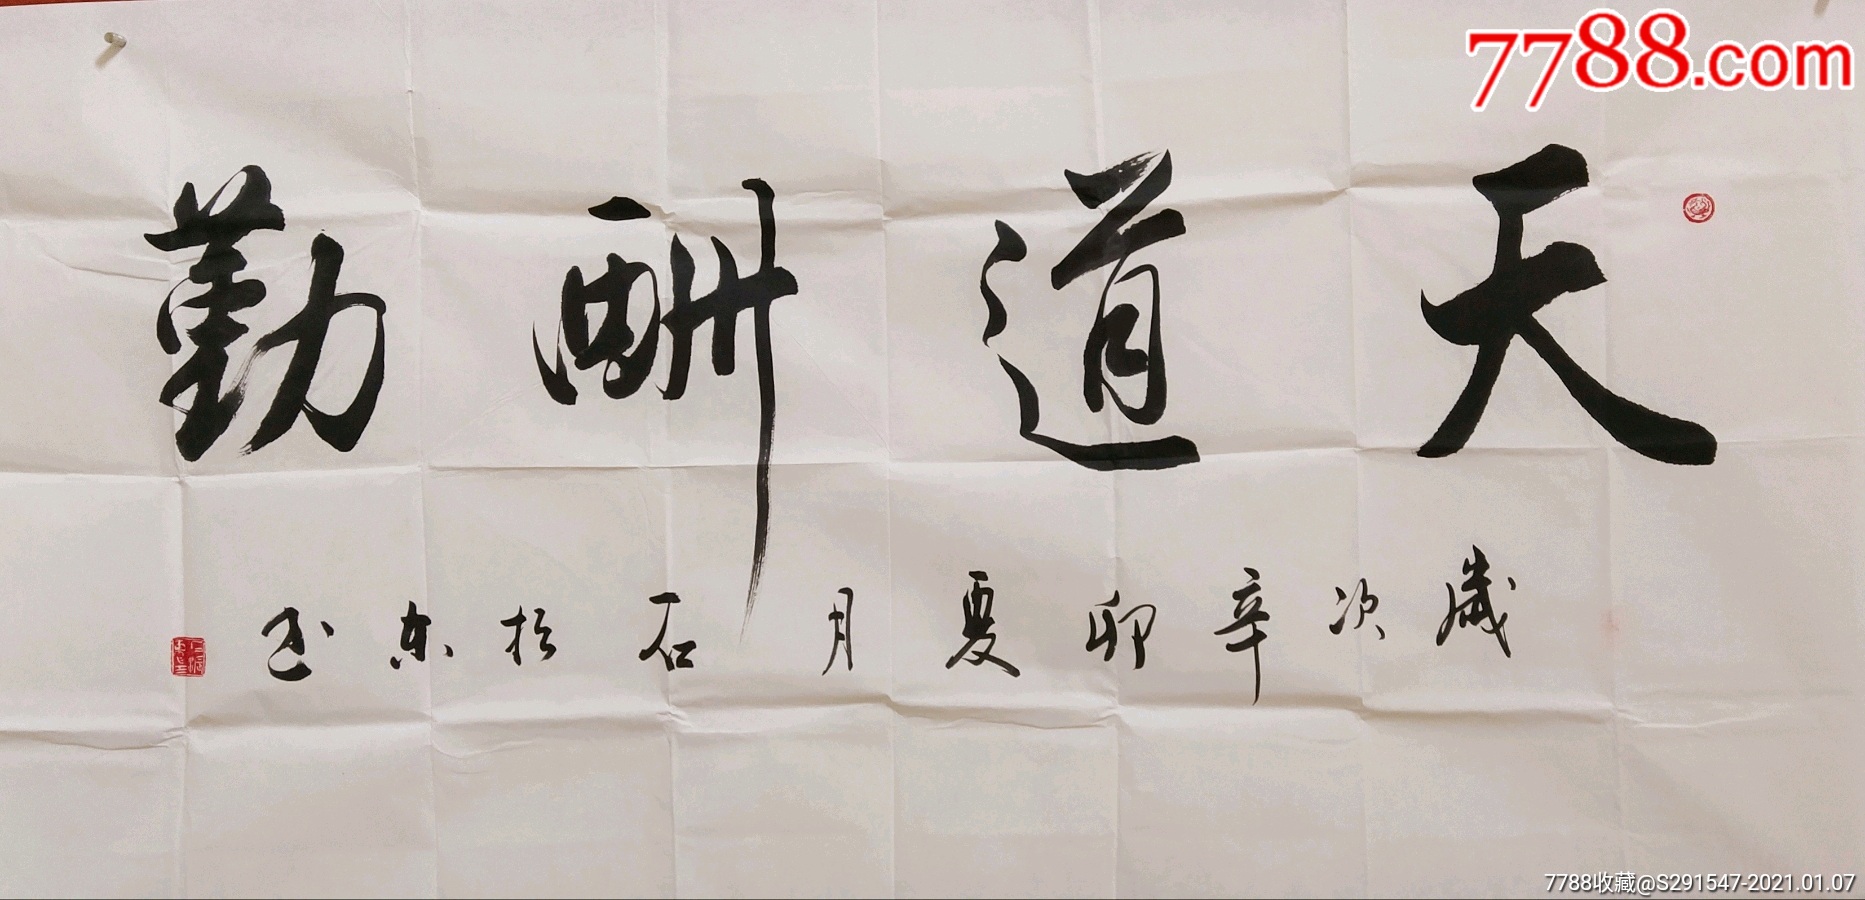 7788.com
天道酬勤
歲次辛卯夏月石东书
7788收藏@S291547-2021.01.07